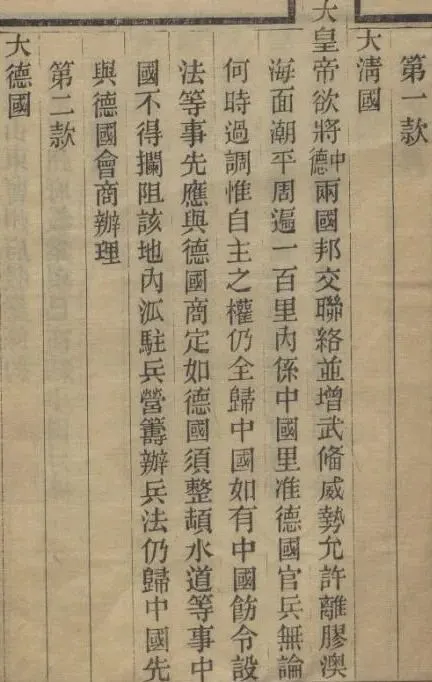 第一款
大淸國
大皇帝欲將中德兩國邦交聯絡並增武備威勢允許離膠澳
海面潮平周遍一百里內係中國里准德國官兵無論
何時過調惟自主之權仍全歸中國如有中國飭令設
法等事先應與德國商定如德國須整頓水道等事中
國不得攔阻該地內派駐兵營籌辦兵法仍歸中國先
與德國會商辦理
第二款
大德國